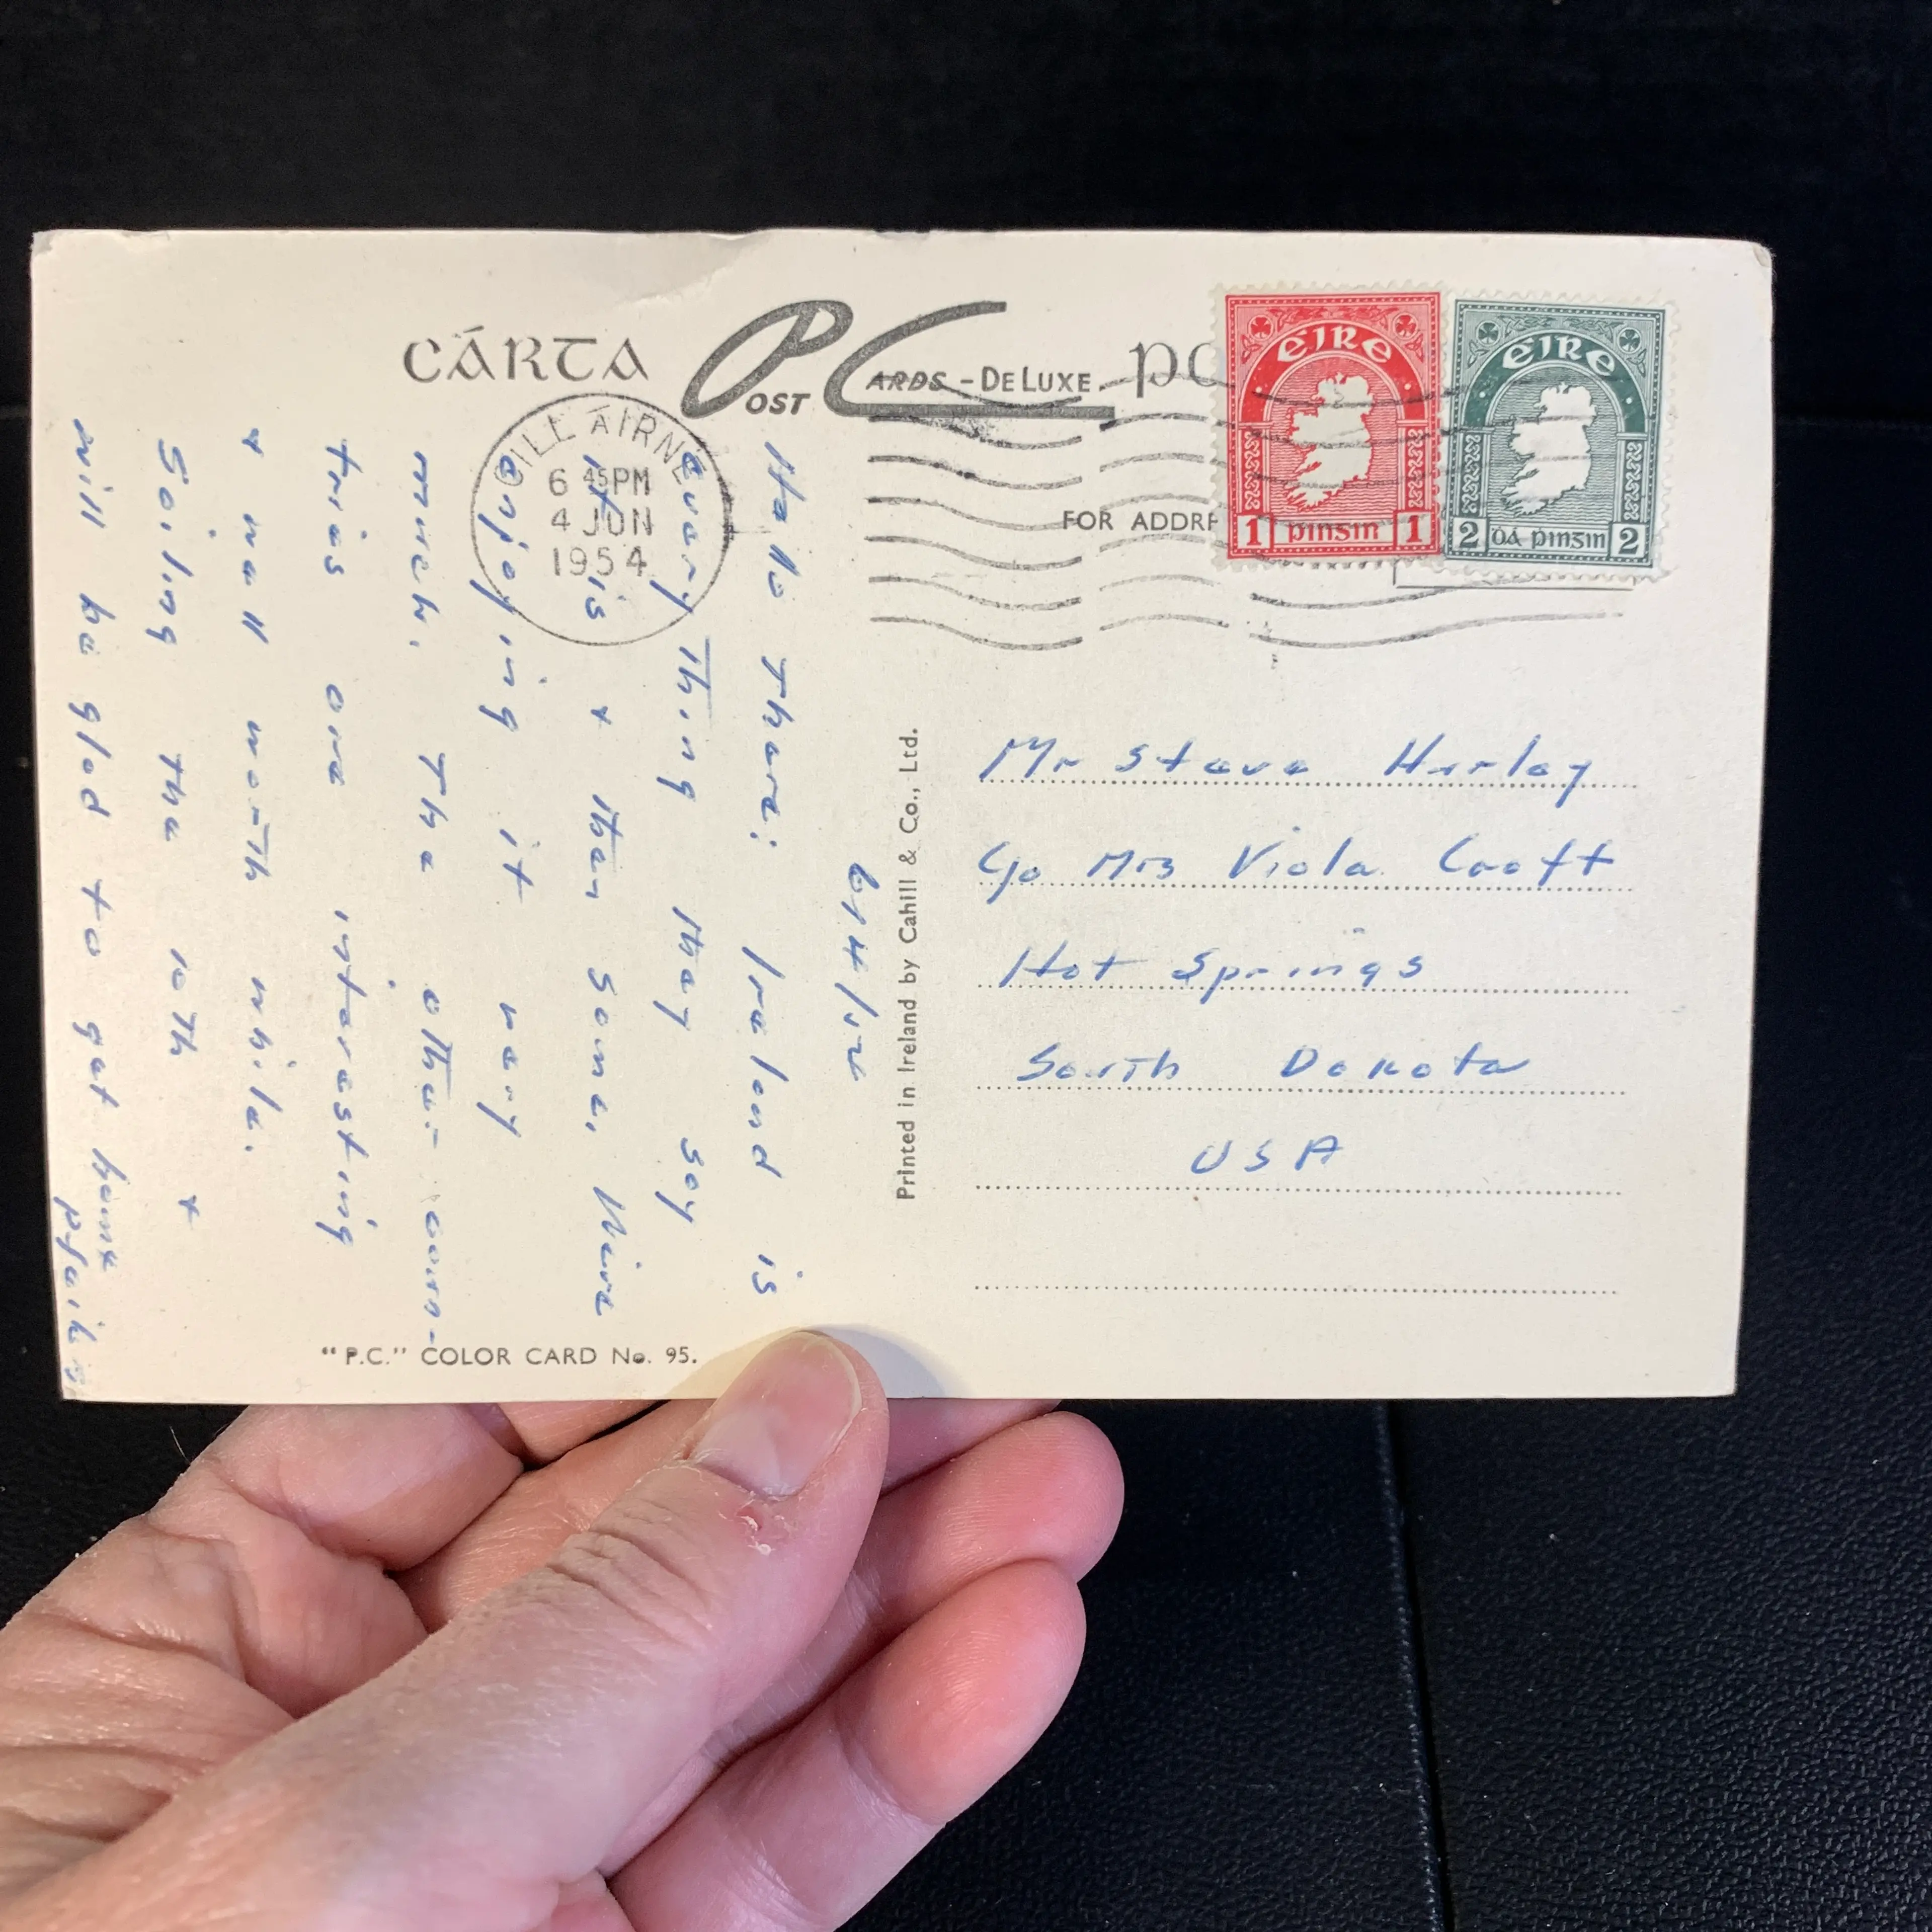 CÁRTA POST CARDS-DELUXE PO
CILL ÁIRNE
6 45PM
4 JUN
1954
ÉIRE
1 pinsin 1
ÉIRE
2 Dá pinsin 2
FOR ADDRE
6/4/52
Hallo There; Ireland is
every Thing they say
it is & then some. Nire
enjoying it very
much. The other coun-
tries are interesting
& wall worth while.
Sailing the 10th &
will be glad to get home
Printed in Ireland by Cahill & Co., Ltd.
Mr Steve Hurley
c/o Mrs Viola Croft
Hot Springs
South Dakota
USA
"P.C." COLOR CARD No. 95.